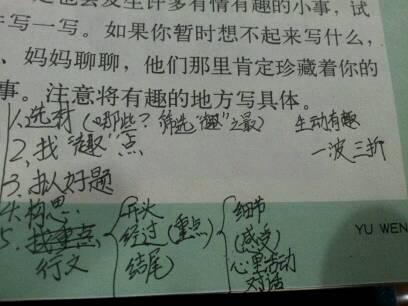 定也会发生许多有情有趣的小事，试
写一写。如果你暂时想不起来写什么，
、妈妈聊聊，他们那里肯定珍藏着你的
事。注意将有趣的地方写具体。
1.选材（①哪些？筛选“趣”之最） 生动有趣
2.找“趣”点 一波三折
3.拟好题
4.构思 开头 细节
5. 经过（重点） （感受）
行文 结尾 心里活动
对话
YU WEN